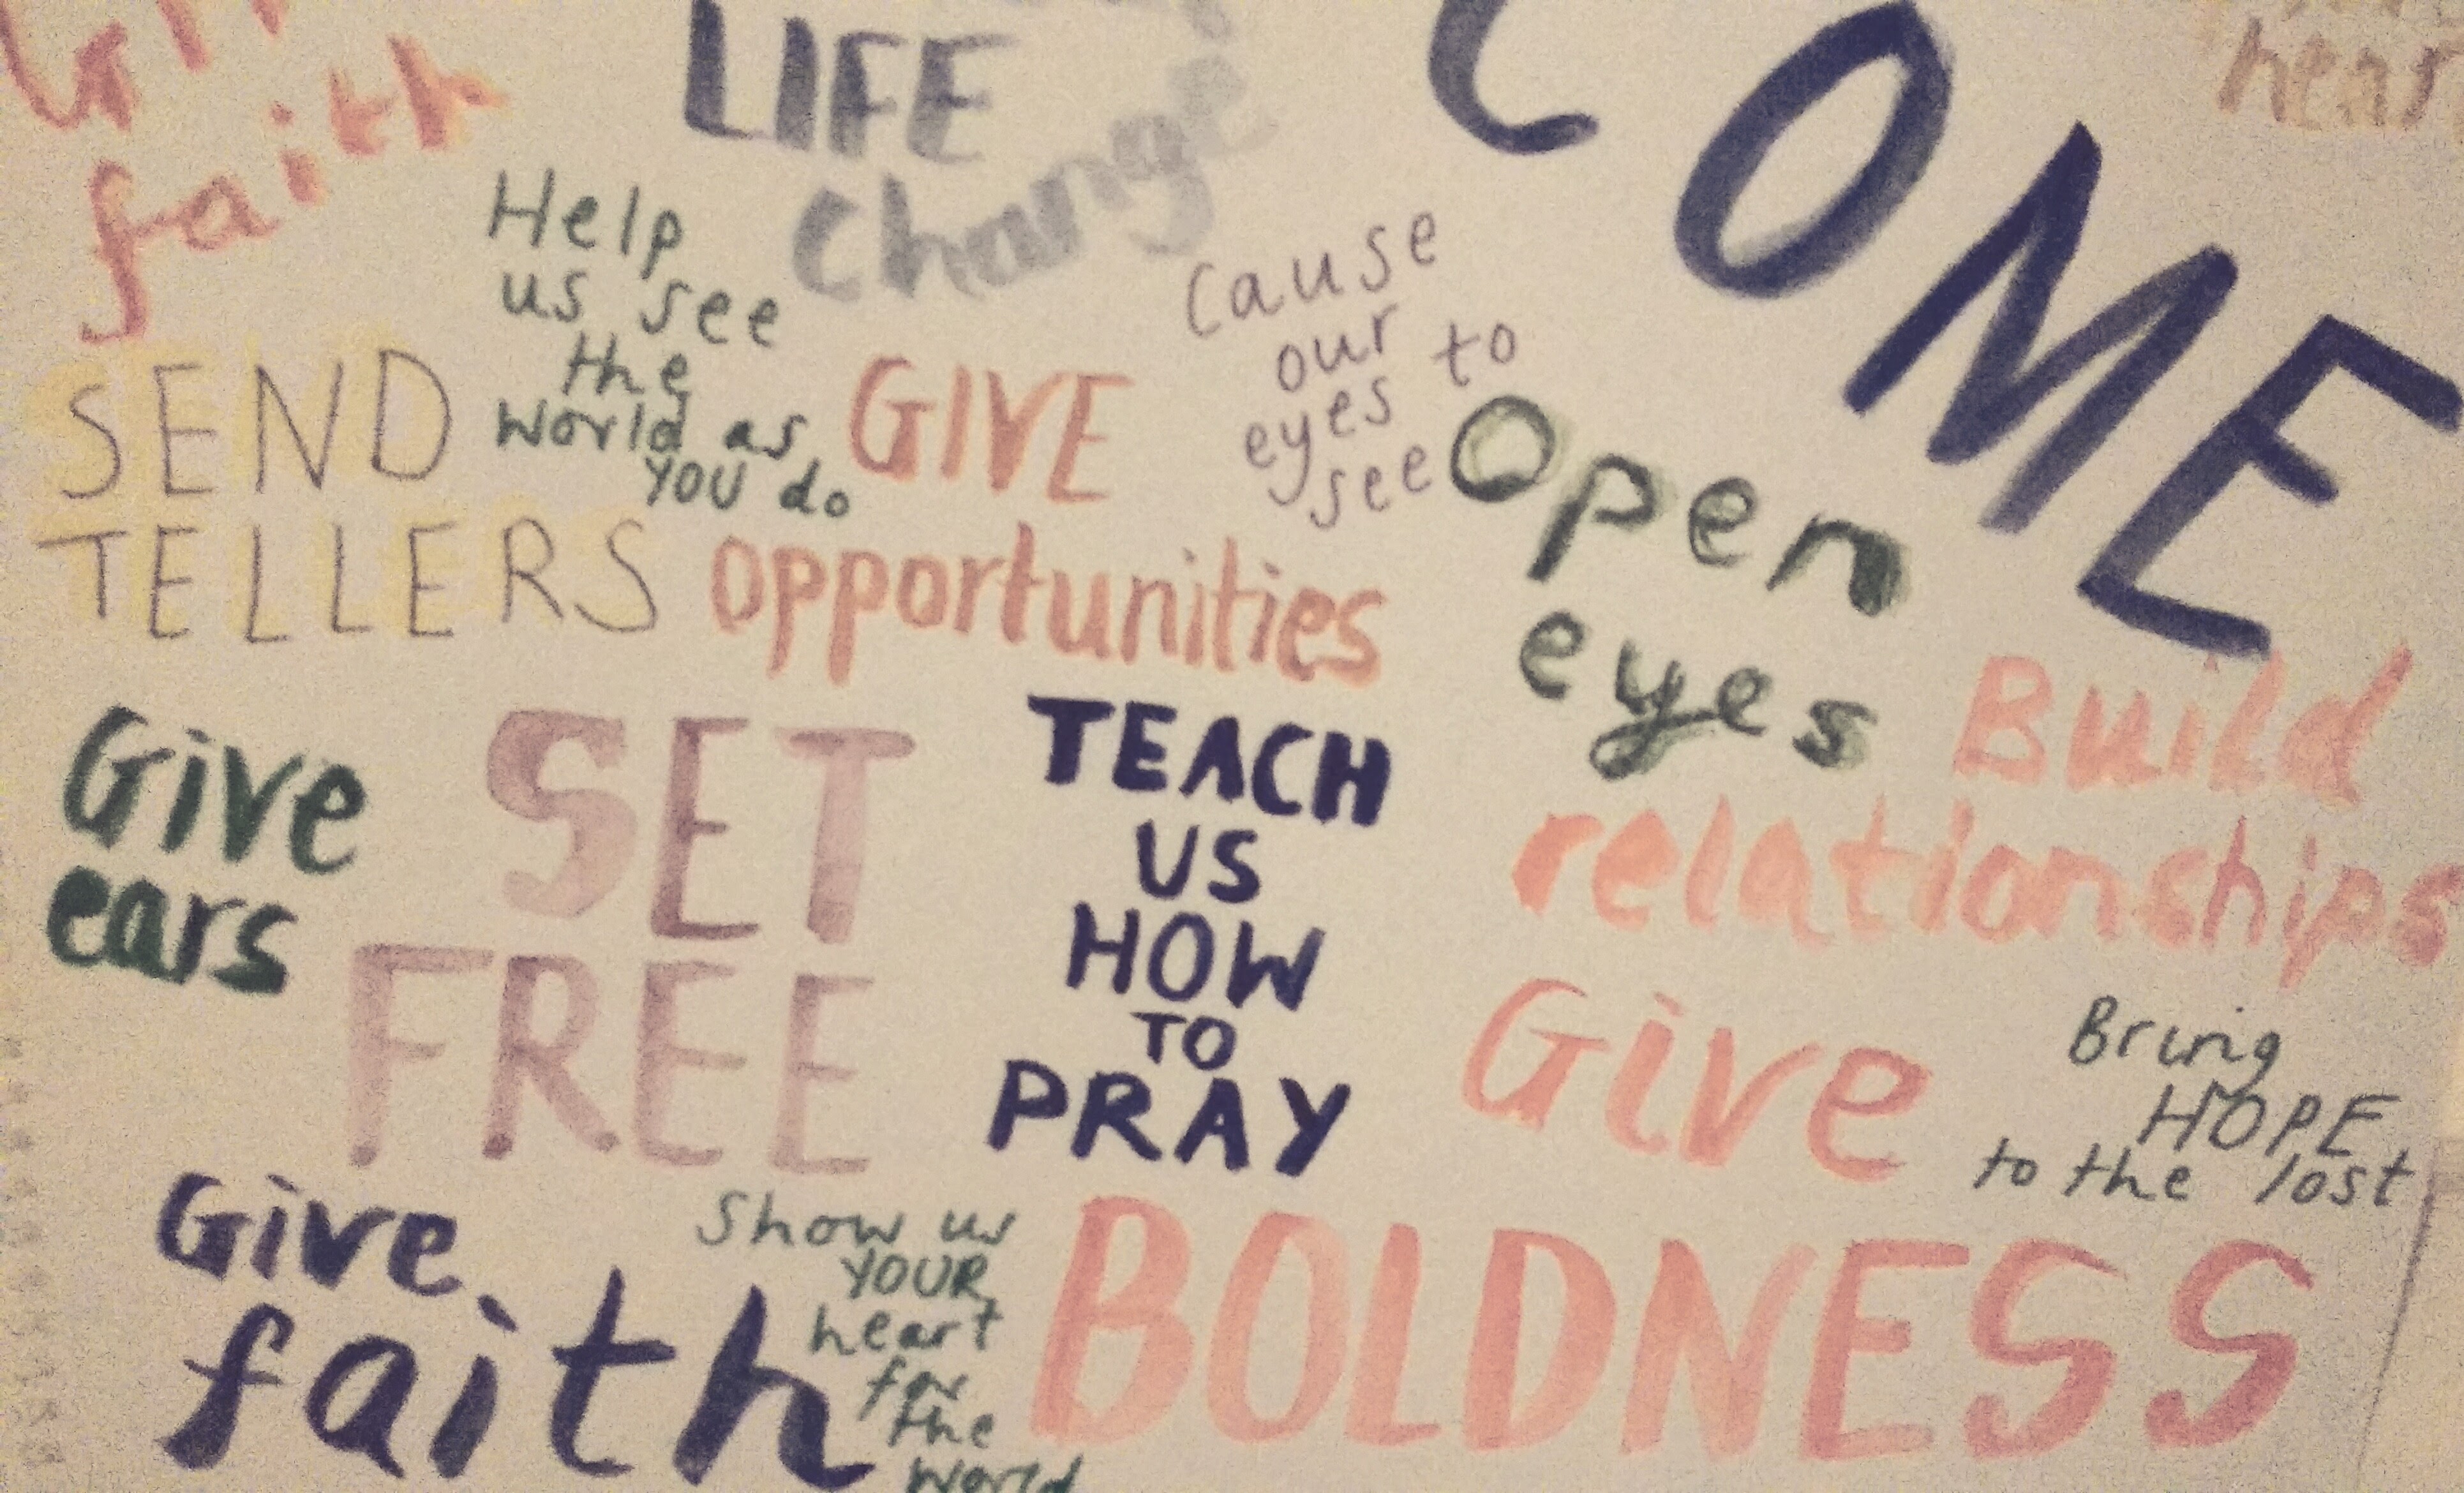 faith
LIFE
Change
COME
Help
us see
the
world as
YOU do
Cause
our
eyes to
see
SEND
TELLERS
GIVE
opportunities
Open
eyes
Build
relationships
Give
ears
SET
FREE
TEACH
US
HOW
TO
PRAY
Give
BOLDNESS
Bring
HOPE
to the lost
Give
faith
Show us
YOUR
heart
for
the
world